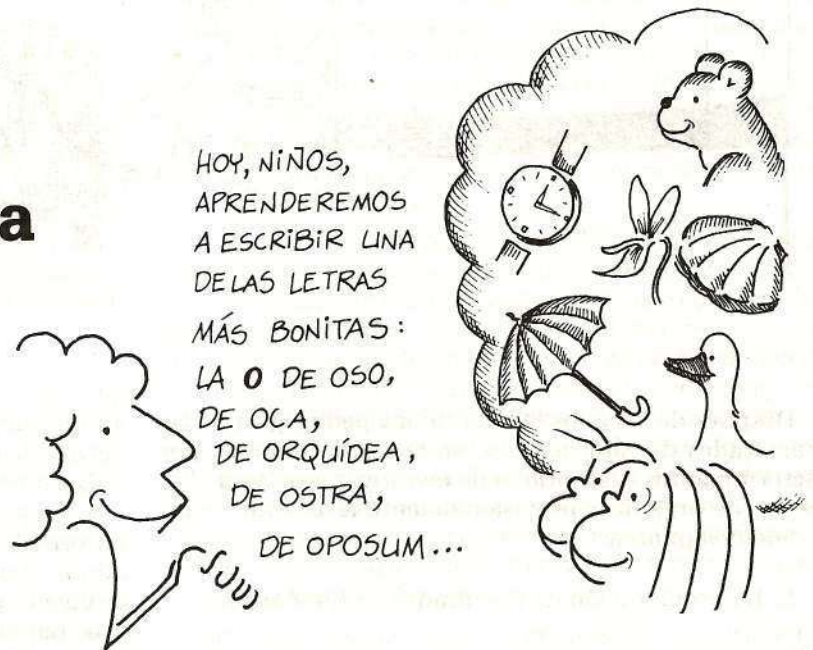 a
HOY, NIÑOS,
APRENDEREMOS
A ESCRIBIR UNA
DE LAS LETRAS
MÁS BONITAS:
LA O DE OSO,
DE OCA,
DE ORQUÍDEA,
DE OSTRA,
DE OPOSUM...